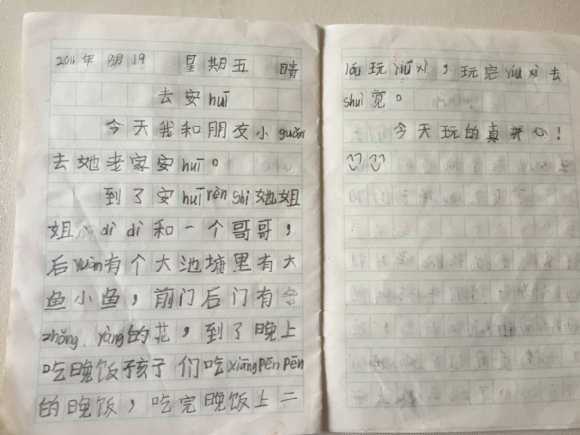 2016年8月19 星期五 晴
去安huī
今天我和朋友小guān
去她老家安huī。
到了安huī rèn shi 她姐
姐、dì dì和一个哥哥，
后yuàn有个大池塘里有大
鱼小鱼，前门后门有各
zhǒng yàng的花，到了晚上
吃晚饭孩子们吃xiāng pēn pēn
的晚饭，吃完晚饭上二
lóu玩yóu xì，玩完yóu xì去
shuì 觉。
今天玩的真开心！